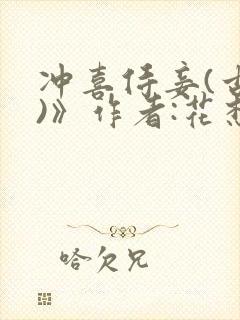 冲喜侍妾(
)》作者:花
哈欠兄